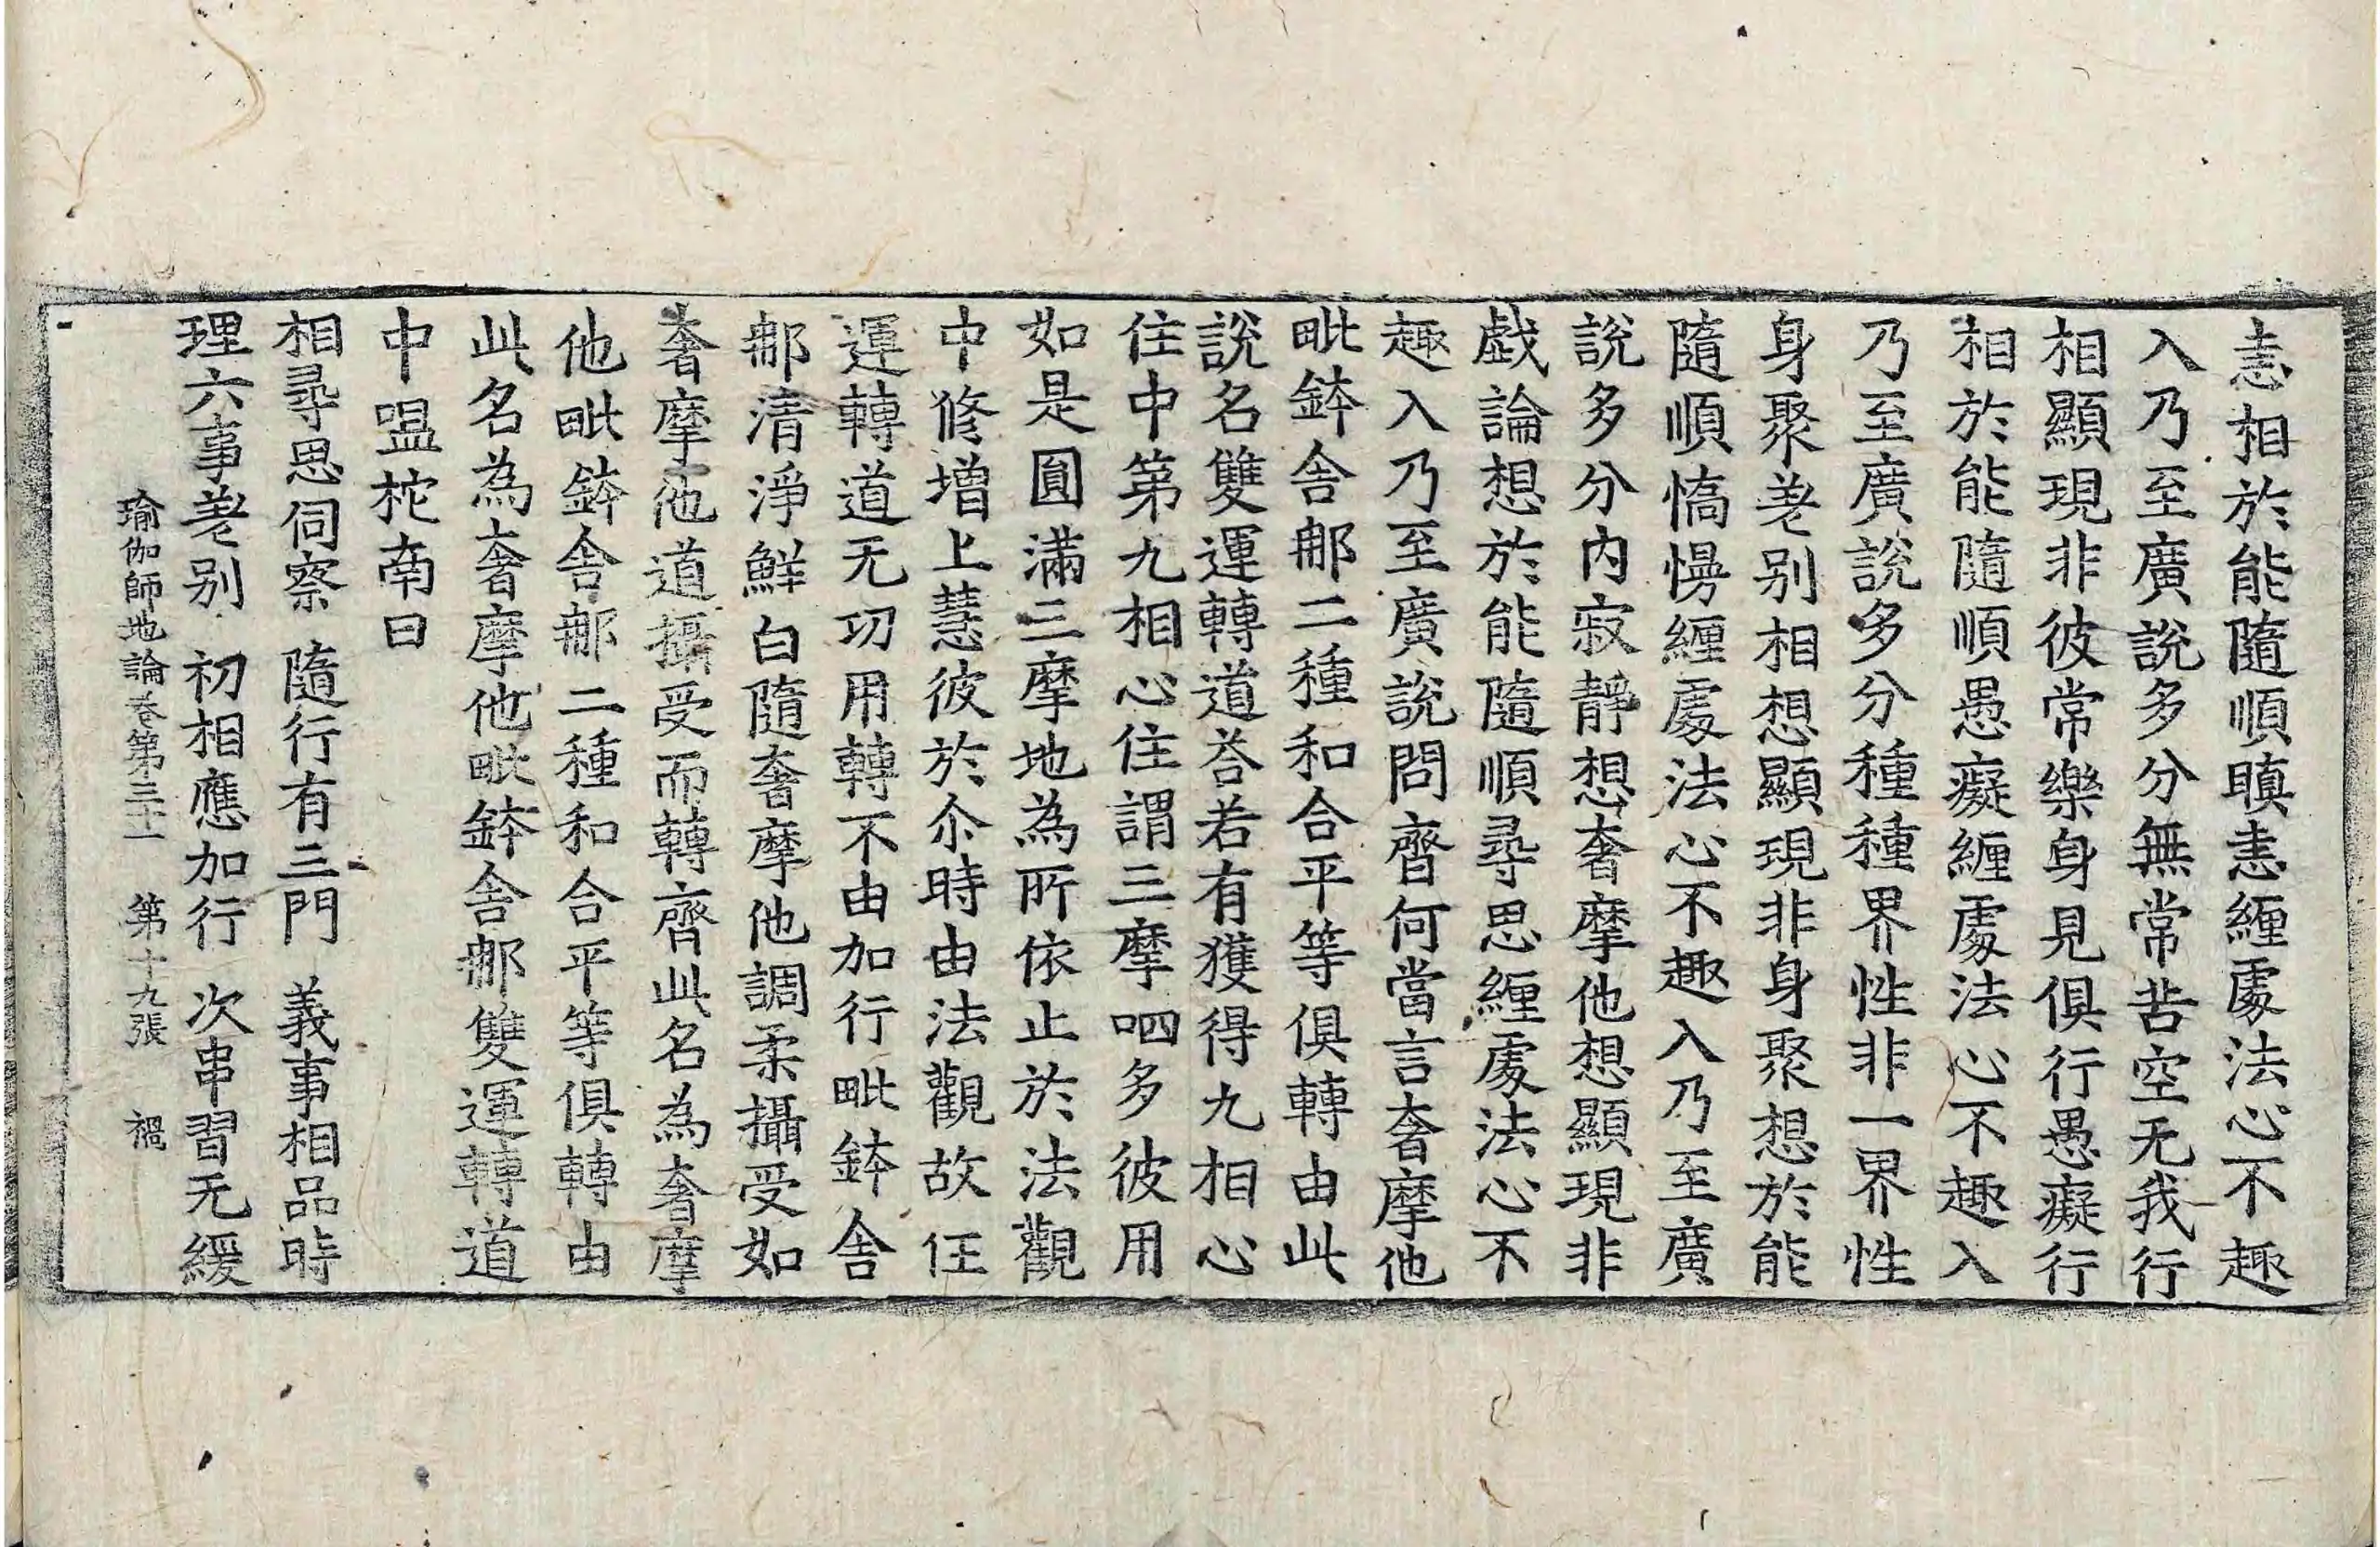 恚相於能隨順瞋恚纏處法心不趣
入乃至廣說多分無常苦空无我行
相顯現非彼常樂身見俱行愚癡行
相於能隨順愚癡纏處法心不趣入
乃至廣說多分種種界性非一界性
身聚差別相想顯現非身聚想於能
隨順憍慢纏處法心不趣入乃至廣
說多分內寂靜想奢摩他想顯現非
戲論想於能隨順尋思纏處法心不
趣入乃至廣說問齊何當言奢摩他
毗鉢舍那二種和合平等俱轉由此
說名雙運轉道荅若有獲得九相心
住中第九相心住謂三摩呬多彼用
如是圓滿三摩地為所依止於法觀
中修增上慧彼於尒時由法觀故任
運轉道无功用轉不由加行毗鉢舍
那清淨鮮白隨奢摩他調柔攝受如
奢摩他道攝受而轉齊此名為奢摩
他毗鉢舍那二種和合平等俱轉由
此名為奢摩他毗鉢舍那雙運轉道
中嗢柁南曰
相尋思伺察 隨行有三門 義事相品時
理六事差別 初相應加行 次串習无緩
瑜伽師地論卷第三十一 第十九張 禍